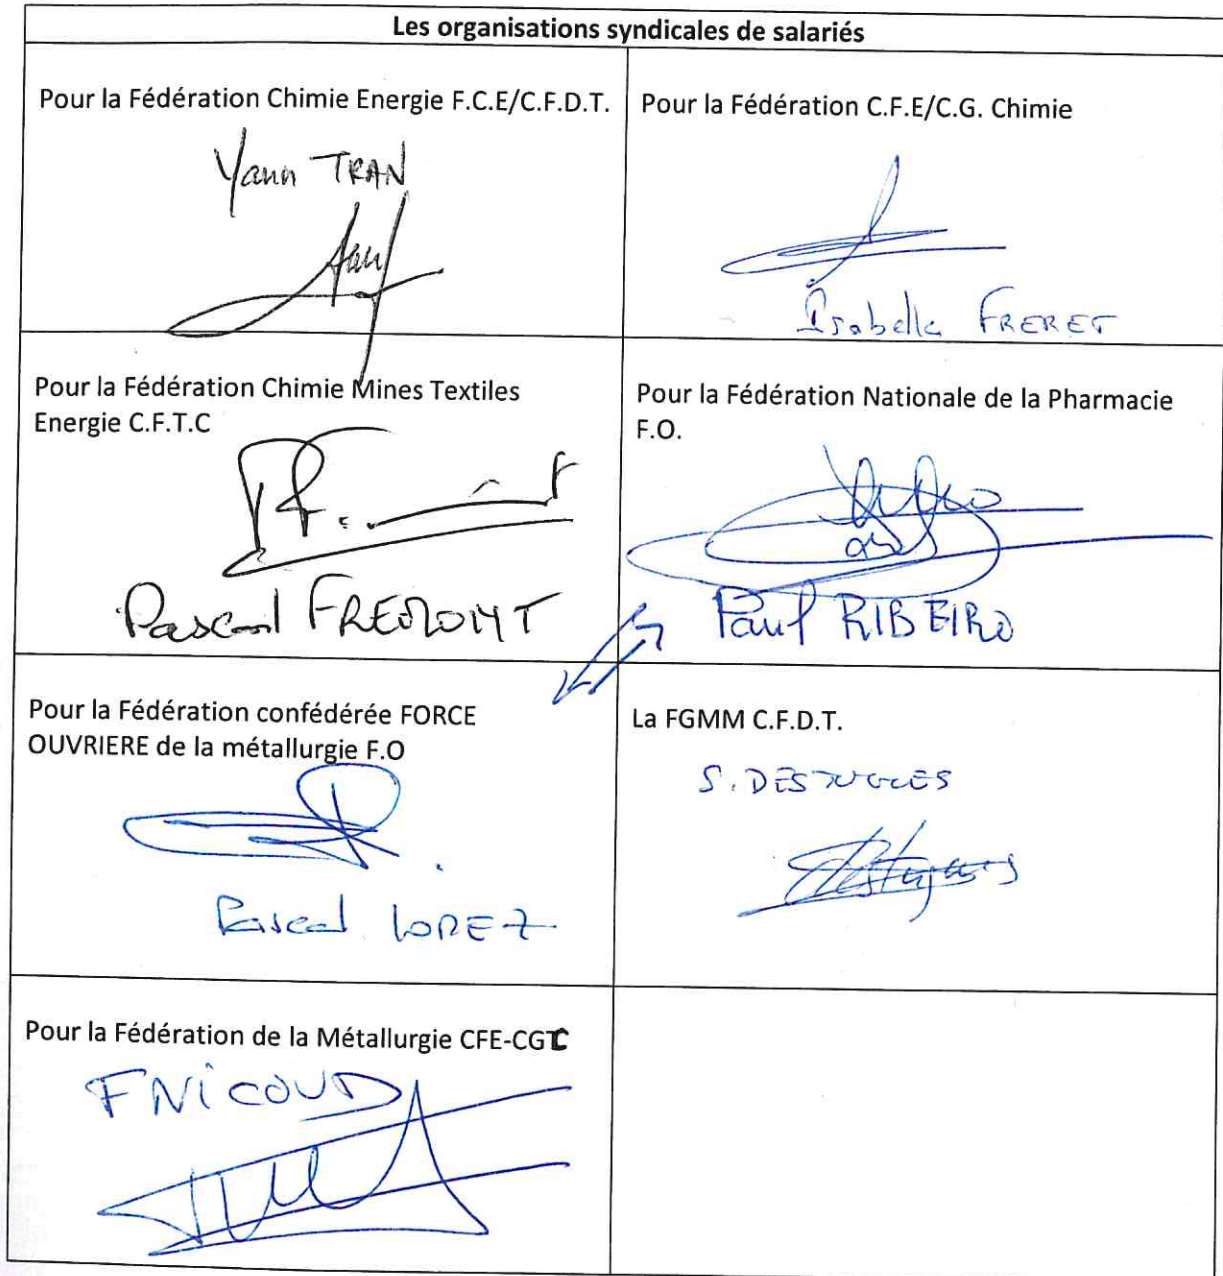 Les organisations syndicales de salariés
Pour la Fédération Chimie Energie F.C.E/C.F.D.T.
Yann TRAN
Pour la Fédération C.F.E/C.G. Chimie
Isabelle FRERET
Pour la Fédération Chimie Mines Textiles
Energie C.F.T.C
Pascal FREMONT
Pour la Fédération Nationale de la Pharmacie
F.O.
Paul RIBEIRO
Pour la Fédération confédérée FORCE
OUVRIERE de la métallurgie F.O
Pascal LOPEZ
La FGMM C.F.D.T.
S. DESTUGUES
Pour la Fédération de la Métallurgie CFE-CGC
F NiCOUD